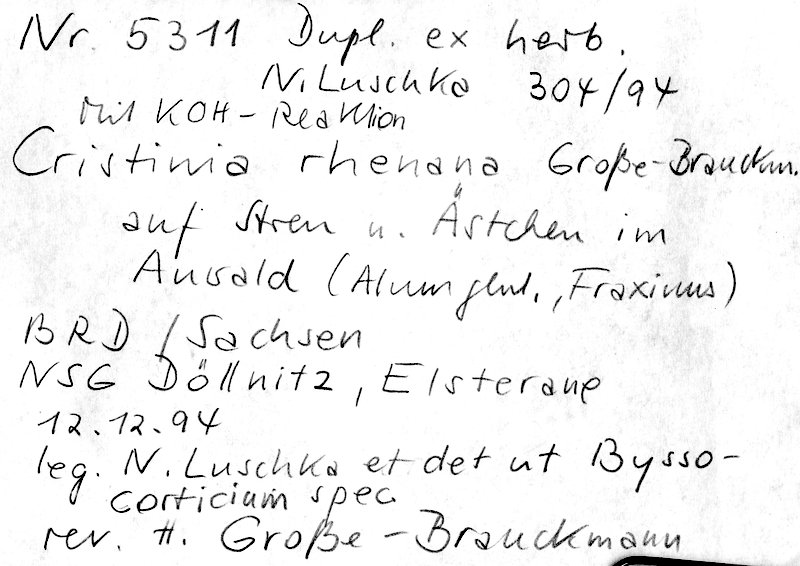 Nr. 5311 Dupl. ex herb.
N. Luschka 304/94
mit KOH-Reaktion
Cristinia rhenana Große-Brauckm.
auf Streu u. Ästchen im
Auwald (Alnum glut., Fraxinus)
BRD / Sachsen
NSG Döllnitz, Elsteraue
12.12.94
leg. N. Luschka et det ut Bysso-
corticium spec.
rev. H. Große-Brauckmann